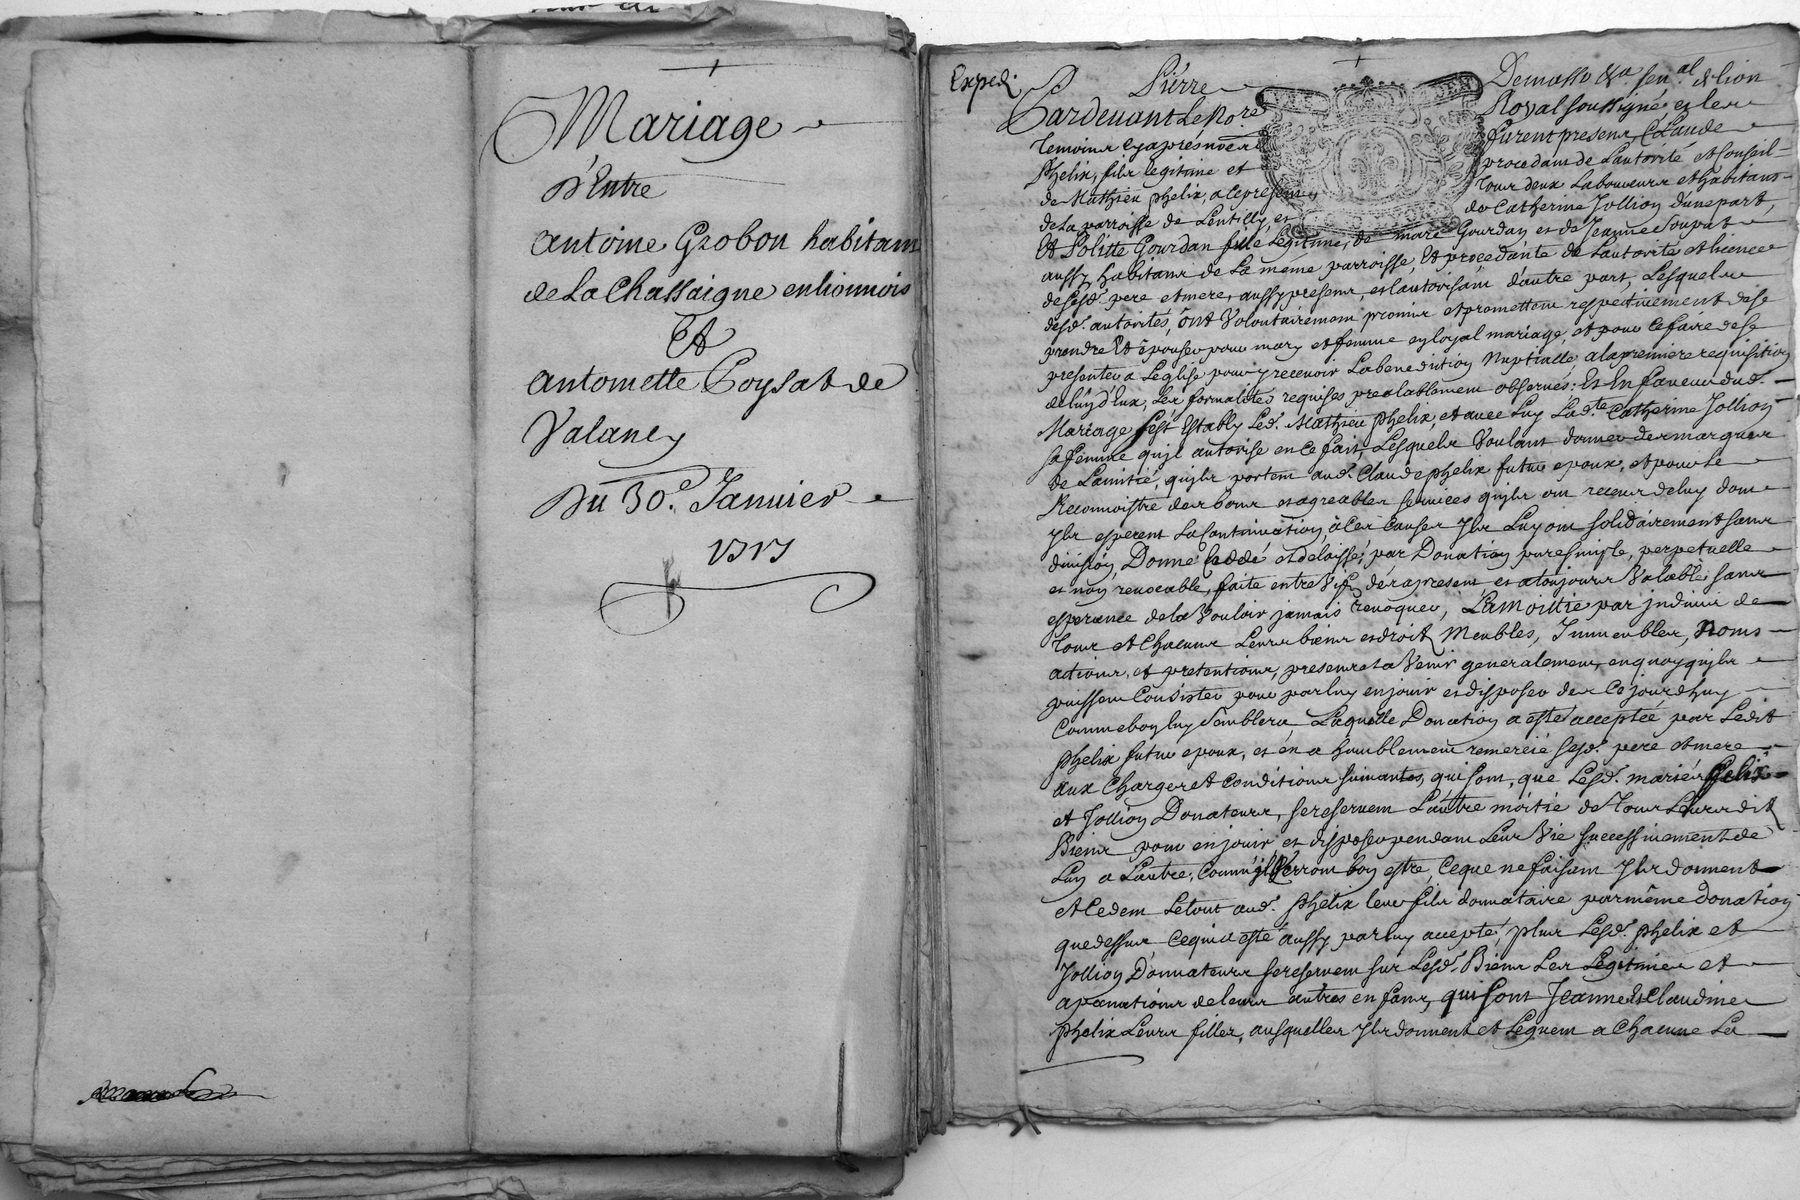 Mariage
D'Entre
Antoine Grobon habitant
de La Chassaigne en lionnois
Et
Antoinette Coysat de
Valancy
Du 30e. Janvier
1717
Expedi.
Pierre Demasso &a sen.al de lion
Pardevant Le No.re Royal soussigné et les
temoins cy apres no.és furent presens Claude
Phelix, fils legitime et procedant de L'autorité et Conseil
de Mathieu phelix a ce present, tous deux Laboureurs et habitans
de La parroisse de Lentilly, et de Catherine Jollion d'une part,
Et Politte Gourdan fille Legitime, de marc Gourdan et de Jeanne Soupat
aussy habitans de La même parroisse, Et procedante de Lautorité et licence
de sesd. pere et mere, aussy presens, et lautorisant d'autre part, Lesquels
desd. autorités, ont Volontairement promis et promettent respectivement de se
prendre Et épouser pour mary et femme en loyal mariage, et pour ce faire de se
presenter a Leglise pour y recevoir La benediction Nuptialle, a la premiere requisition
de luy d'Eux, Les formalités requises prealablement observés: Et En faveur dud.
Mariage s'est Estably Led. Mathieu Phelix, et avec Luy Lad.te Catherine Jollion
sa femme qu'jl autorise en ce fait, Lesquels Voulant donner des marques
de Lamitié, qu'jls portent aud. Claude phelix futur epoux, et pour Le
Reconnoistre des bons et agreables services qu'jls ont receus de luy dont
Jls esperent La Continuation, à Ces Causes Jls Luy ont solidairement sans
division, Donné Ceddé et delaissé, par Donation pure simple, perpetuelle
et non revocable, faite entre Vifs, dés apresent et a toujours Valable sans
esperance de la Vouloir jamais revoquer, La Moittié par jndivis de
Tous et Chacuns Leurs biens et droits Meubles, Immeubles, Noms
actions, et pretentions, presens et a Venir generalement, en quoy qu'jls
puissent Consister pour par luy en jouir et disposer des Ce jourd'huy
Comme bon luy Semblera, Laquelle Donation a esté acceptéé par Ledit
Phelix futur epoux, et en a humblement remercié sesd. pere et mere
aux Charges et conditions suivantes, qui sont, que Lesd. mariés phelix
et Jollion Donateurs, se reservent L'autre moitié de Tous Leurs dits
Biens pour en jouir et disposer pendant Leur Vie successivement de
Lun a Lautre, Comm'jls Verront bon estre, Ce que ne faisant Jls donnent
et Cedent Le tout aud. Phelix leur fils donnataire par même Donation
que dessus Ce qui a esté aussy par luy accepté, plus Lesd. phelix et
Jollion Donnateurs se reservent sur Lesd. Biens Les Legitimes et
apanations de leurs autres enfans, qui sont Jeanne Et Claudine
Phelix Leurs filles, ausquelles Jls donnent et Leguent a Chacune La